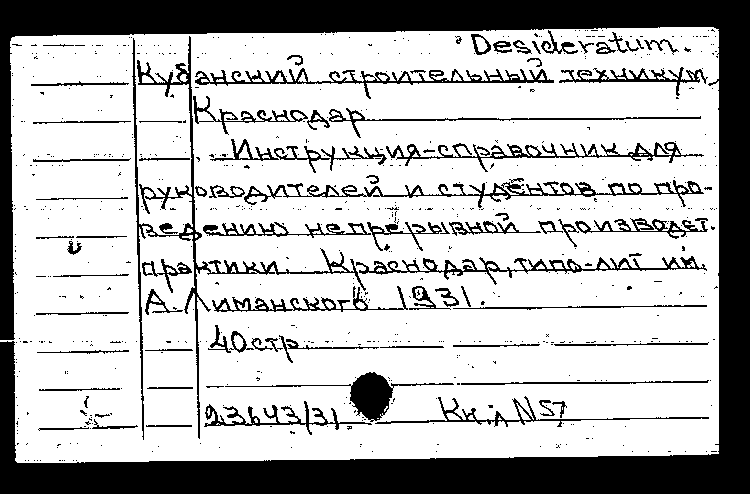 Desideratum.
Кубанский строительный техникум,
Краснодар
Инструкция-справочник для
руководителей и студентов по про-
ведению непрерывной производст.
практики. Краснодар, типо-лит им.
А. Лиманского 1931.
40 стр.
23643/31. Кн.л N57